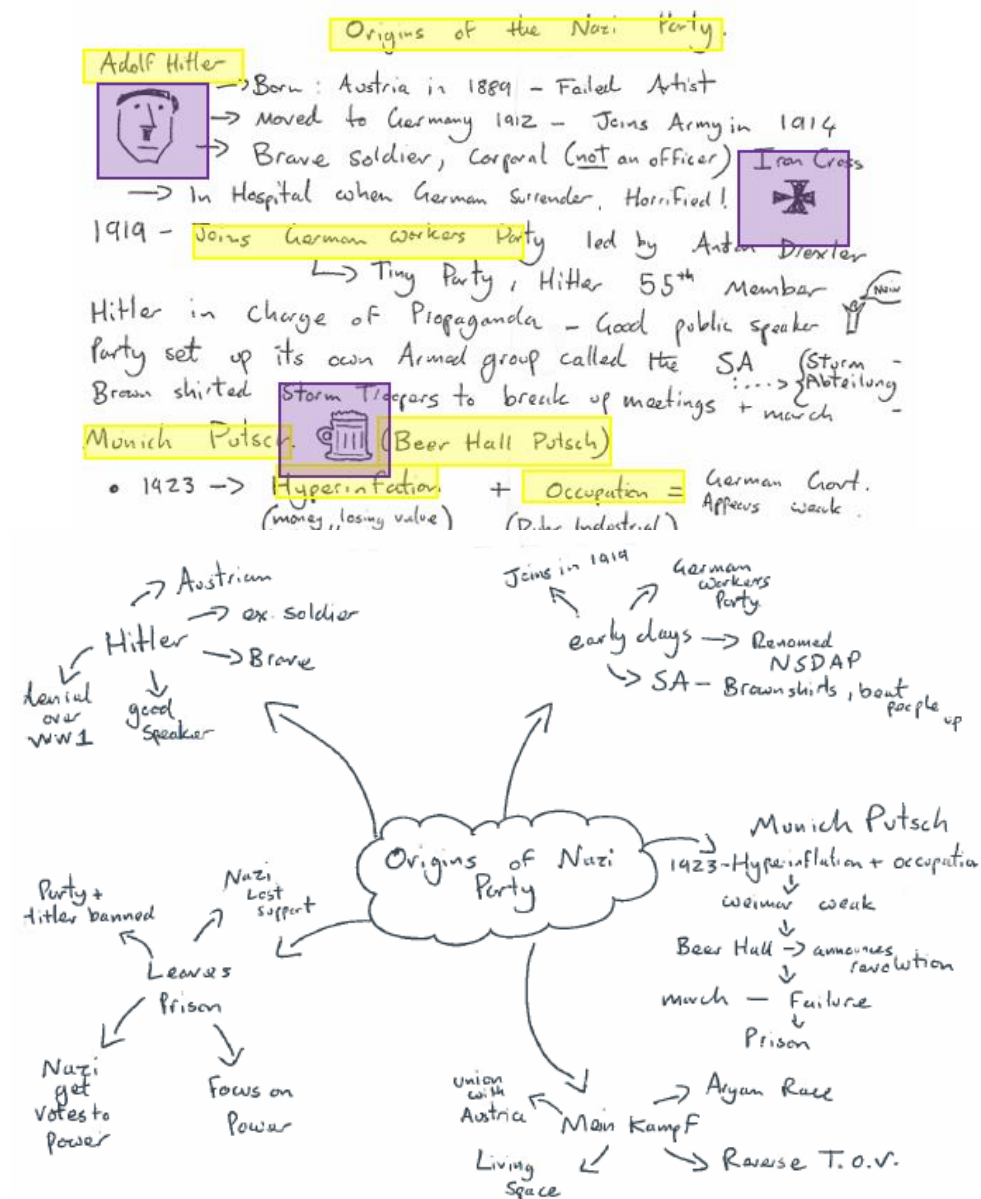 Origins of the Nazi Party.
Adolf Hitler
→ Born : Austria in 1889 – Failed Artist
→ Moved to Germany 1912 – Joins Army in 1914
→ Brave soldier, Corporal (not an officer) Iron Cross
→ In Hospital when German Surrender, Horrified!
1919 – Joins German Workers Party led by Anton Drexler
↳ Tiny Party, Hitler 55th Member
Hitler in charge of Propaganda – Good public speaker
Party set up its own Armed group called the SA (Sturm -
Abteilung
Brown shirted Storm Troopers to break up meetings + march -
Munich Putsch. (Beer Hall Putsch)
• 1923 → Hyperinflation + Occupation = German Govt.
Appears weak.
(money losing value) (Ruhr Industrial)
Hitler
Austrian
ex. soldier
Brave
good
Speaker
denial
over
WW1
early days
Joins in 1919
German
Workers
Party
Renamed
NSDAP
SA – Brownshirts, beat
people
up
Origins of Nazi
Party
Munich Putsch
1923 – Hyperinflation + occupation
weimar weak
Beer Hall → announces
revolution
march – Failure
Prison
Leaves
Prison
Party +
Hitler banned
Nazi
Lost
support
Nazi
get
votes to
Power
Focus on
Power
Mein Kampf
union
with
Austria
Aryan Race
Living
Space
Reverse T.O.V.